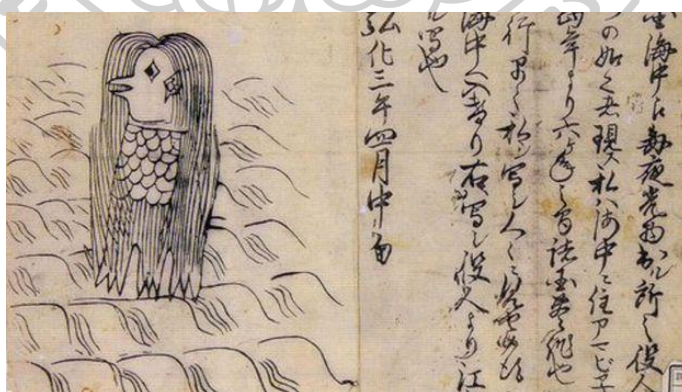 国海中え毎夜光物出ル所之役
づの如く者現ス私ハ海中ニ住アマビヱ
当年より六ヶ年之間諸国豊作也
行早々私写シ人々ニ見セ候得
海中へ入けり右写シ役人より江
ル写也
弘化三年四月中旬